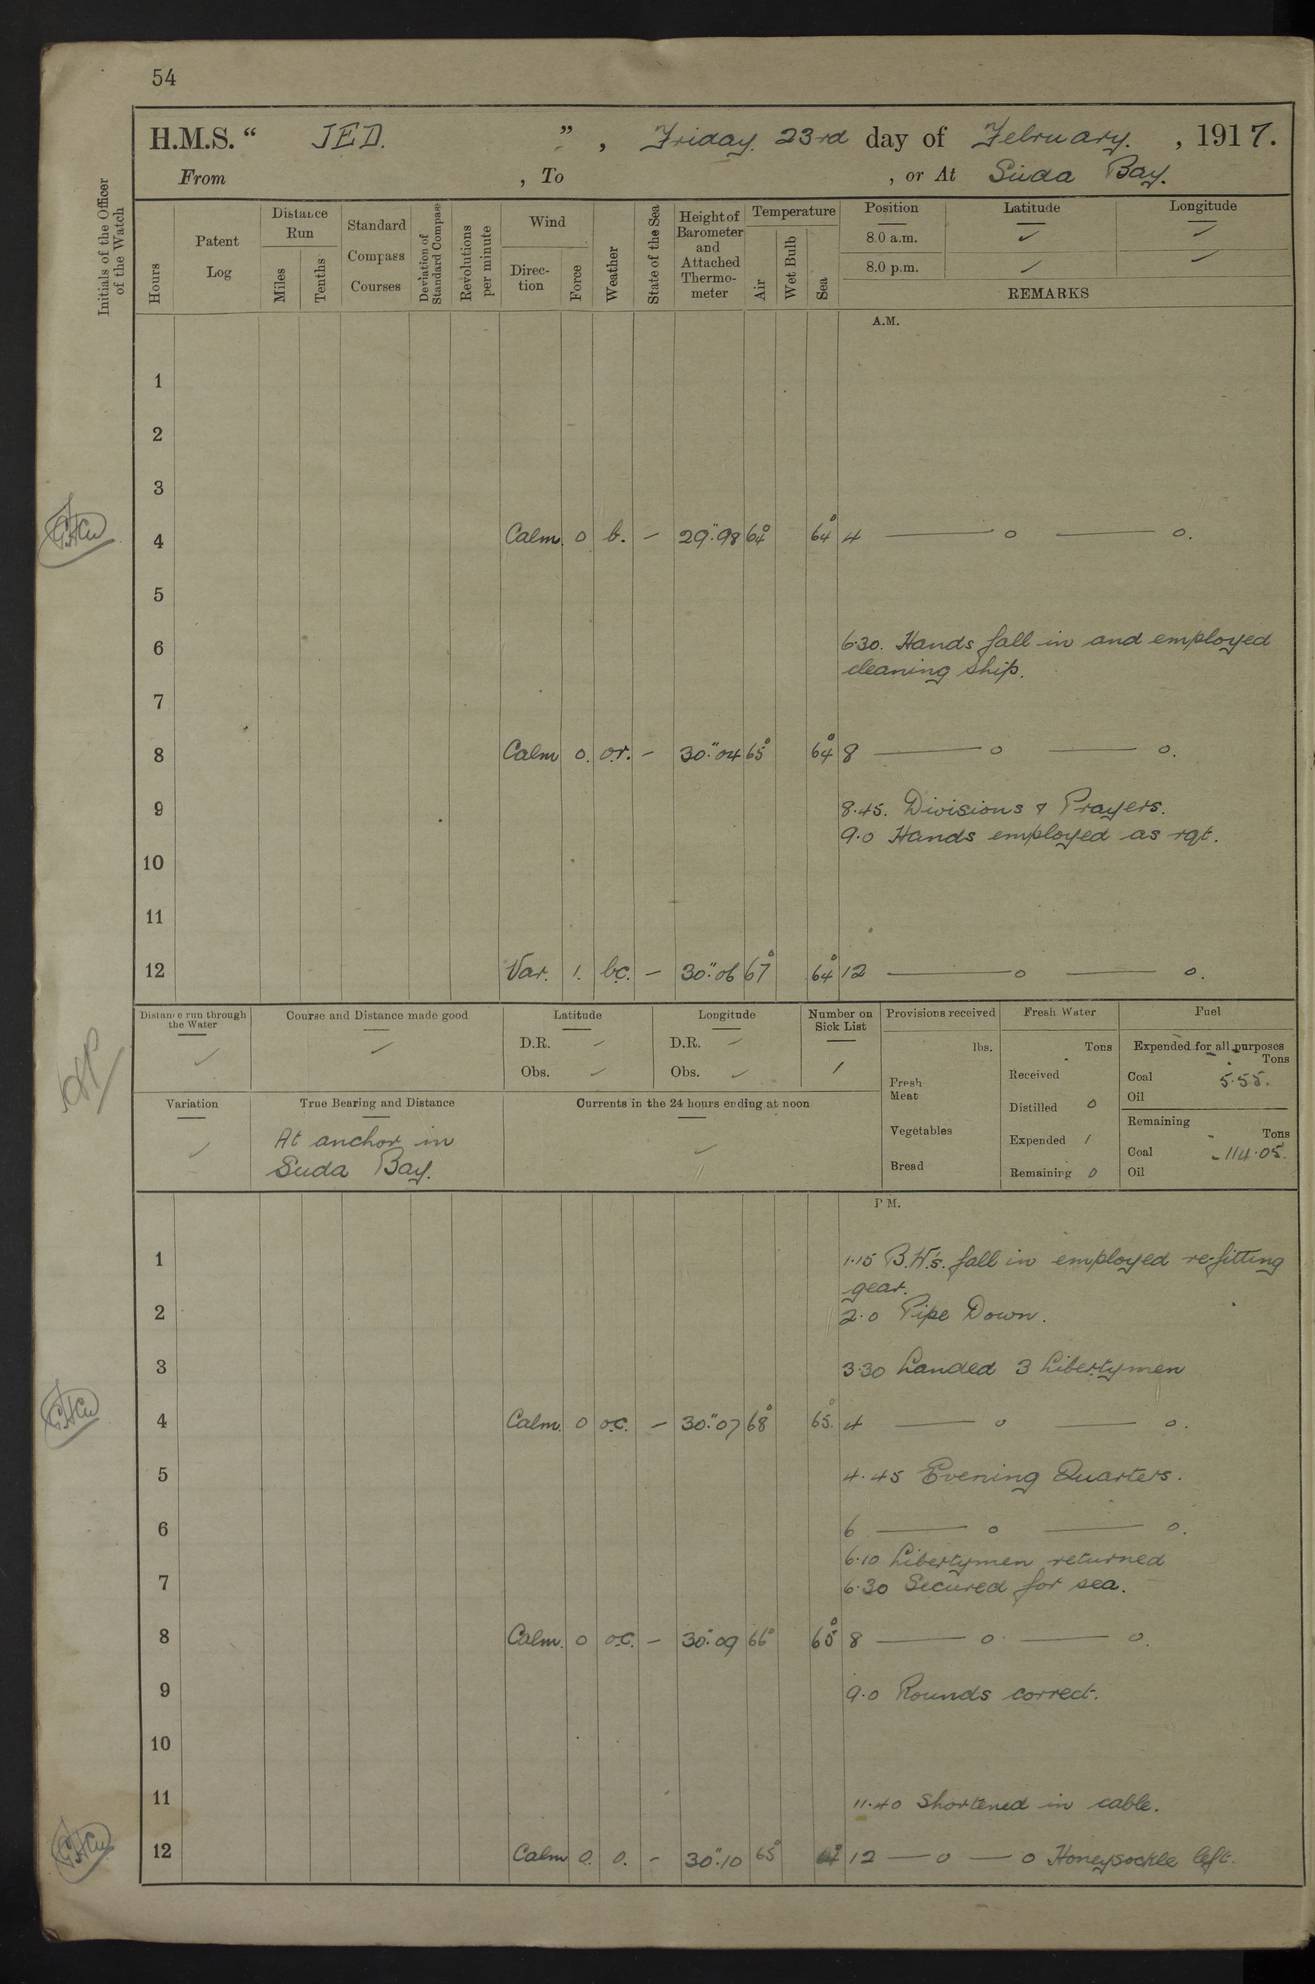 54
H.M.S. “ JED. ” , Friday 23rd day of February. , 1917.
From , To , or At Suda Bay.
Initials of the Officer of the Watch
Hours
Patent Log
Distance Run
Miles
Tenths
Standard Compass Courses
Deviation of Standard Compass
Revolutions per minute
Wind
Direc-tion
Force
Weather
State of the Sea
Height of Barometer and Attached Thermo-meter
Temperature
Air
Wet Bulb
Sea
Position Latitude Longitude
8.0 a.m. ✓
8.0 p.m. ✓ ✓
REMARKS
A.M.
1
2
3
4 Calm. 0 b. – 29".98 64° 64° 4 —— o —— o.
5
6 6.30. Hands fall in and employed
cleaning ship.
7
8 Calm 0. o.r. – 30".04 65° 64° 8 —— o —— o.
9 8.45. Divisions & Prayers.
9.0 Hands employed as rqt.
10
11
12 Var. 1. b.c. – 30".06 67° 64° 12 —— o —— o.
Distance run through the Water ✓
Course and Distance made good ✓
Latitude
D.R. ✓
Obs. ✓
Longitude
D.R. ✓
Obs. ✓
Number on Sick List
1
Provisions received
lbs.
Fresh Meat
Vegetables
Bread
Fresh Water
Tons
Received
Distilled 0
Expended 1
Remaining 0
Fuel
Expended for all purposes
Tons
Coal 5.55.
Oil
Remaining
Tons
Coal 114.05.
Oil
Variation ✓
True Bearing and Distance
At anchor in
Suda Bay.
Currents in the 24 hours ending at noon ✓
P.M.
1 1.15 B.W's. fall in employed re-fitting
gear.
2 2.0 Pipe Down.
3 3.30 Landed 3 Libertymen
4 Calm. 0 o.c. – 30".07 68° 65° 4 —— o —— o.
5 4.45 Evening Quarters.
6 6 —— o —— o.
6.10 Libertymen returned
7 6.30 Secured for sea.
8 Calm. 0 o.c. – 30".09 66° 65° 8 —— o —— o.
9 9.0 Rounds correct.
10
11 11.40 Shortened in cable.
12 Calm 0. o. – 30".10 65° 12 — o — o Honeysockle left.